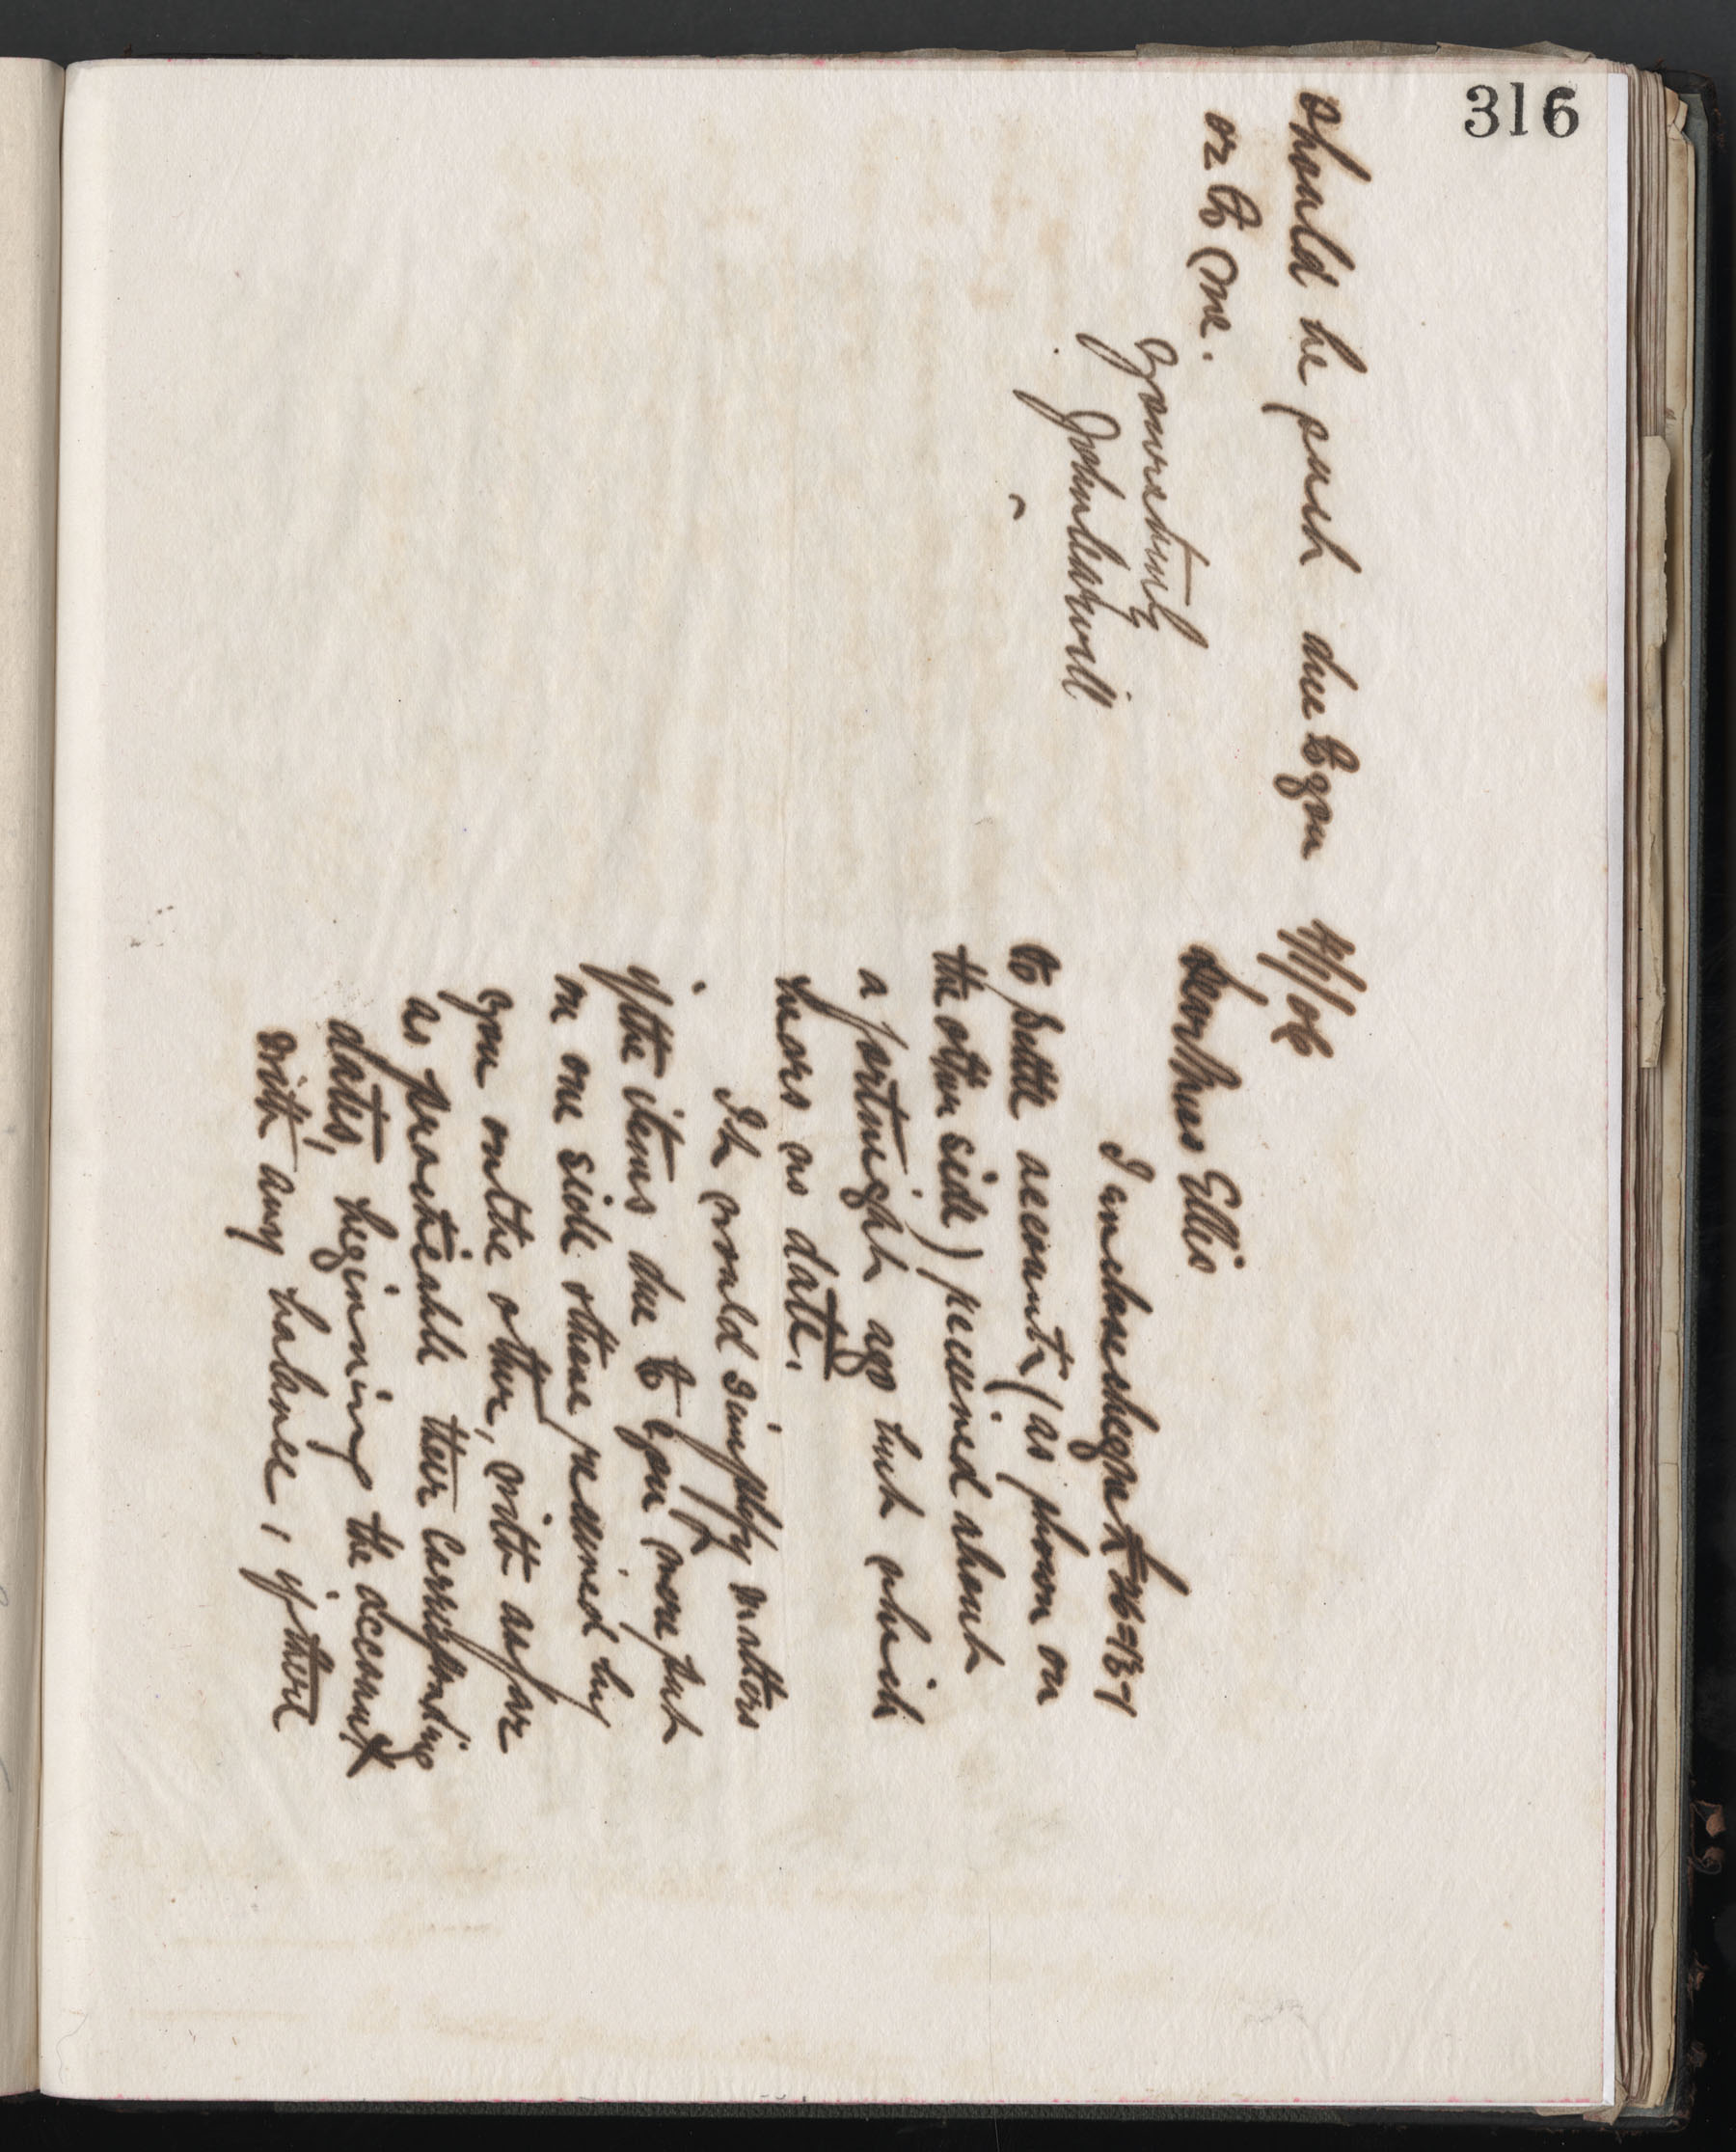 316
4/1/06
Dear Miss Ellis
I enclose cheque £26=13-1
to settle account (as shown on
the other side) received about
a fortnight ago but which
bears no date.
It would simplify matters
if the items due to you were put
on one side & those received by
you on the other, with as far
as practicable their corresponding
dates, beginning the account
with any balance, if there
should be such due to you
or to me.
Yours truly
John Carvill